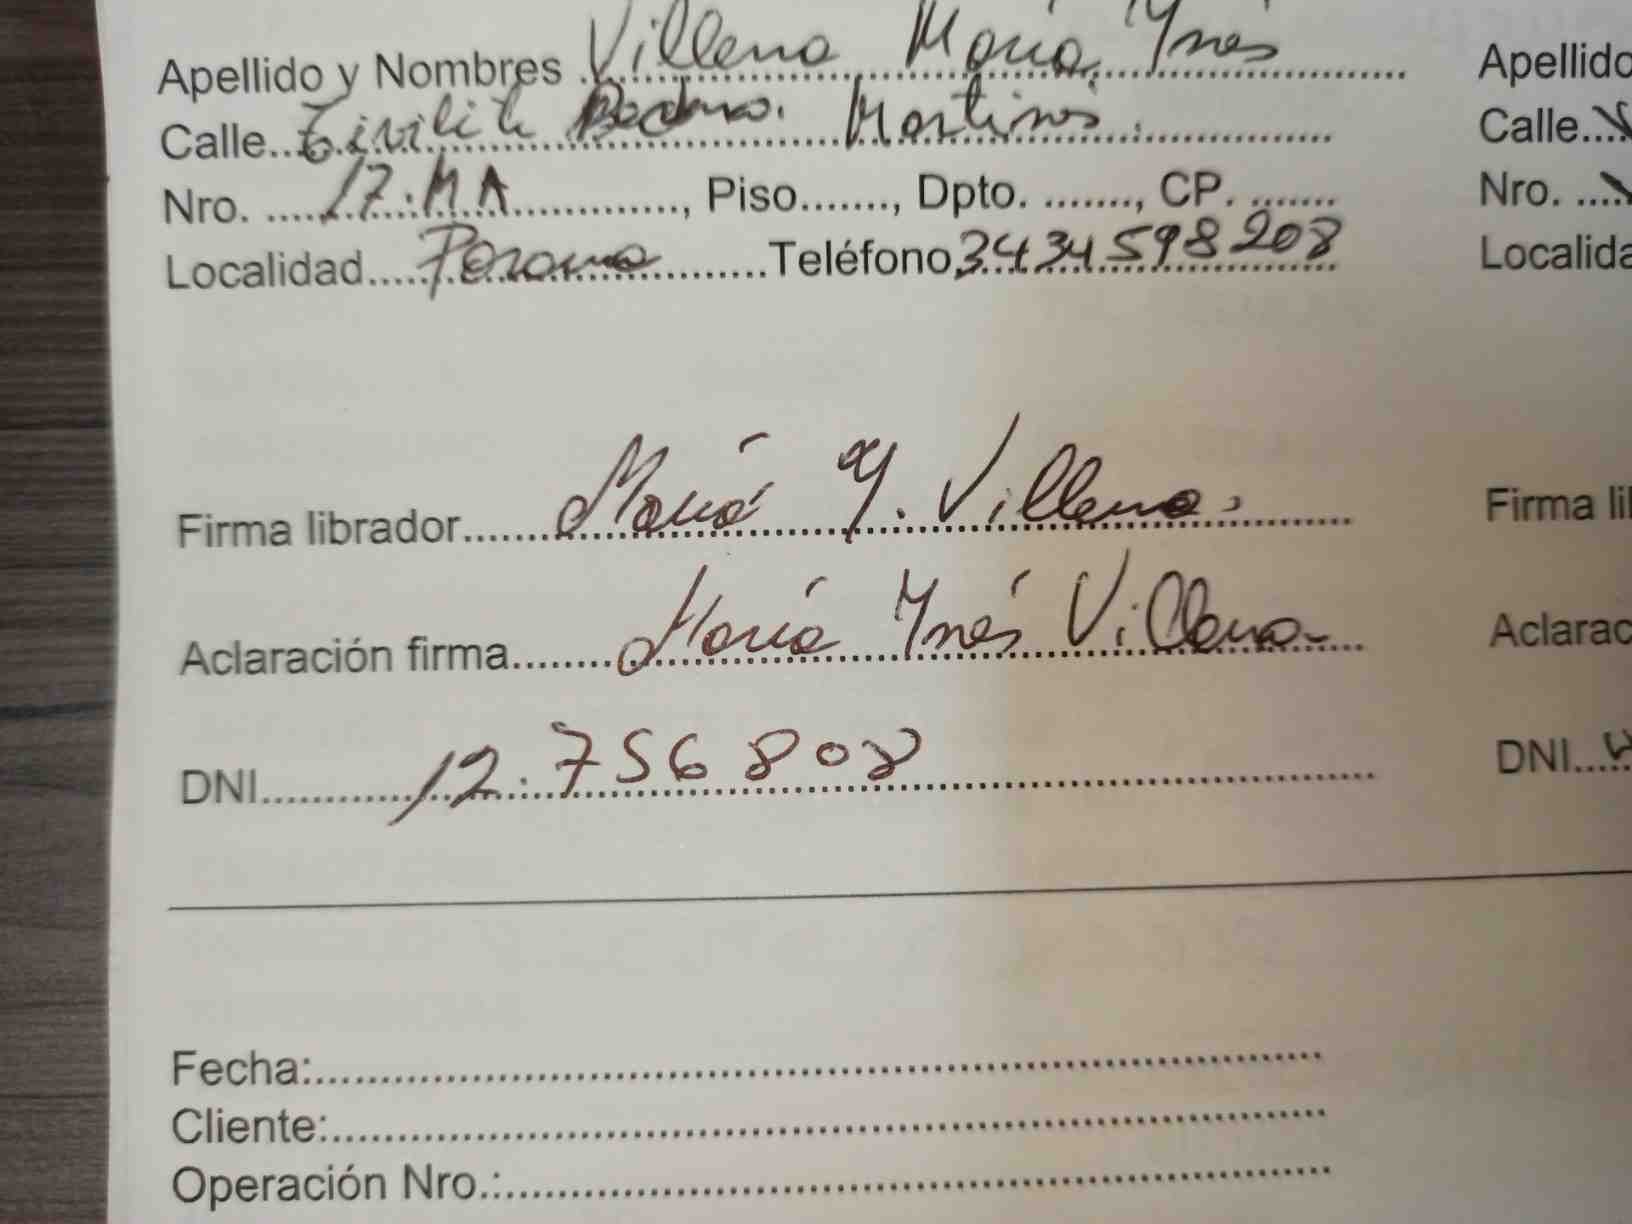 Apellido y Nombres Villena María Ynés
Calle Pedro Martínes
Nro. 17.MA, Piso......., Dpto. ......., CP. .......
Localidad Parana Teléfono 3434598208
Firma librador María Y. Villena
Aclaración firma María Ynés Villena
DNI 12.756808
Fecha:
Cliente:
Operación Nro.:
Apellido
Calle
Nro.
Localida
Firma lib
Aclarac
DNI